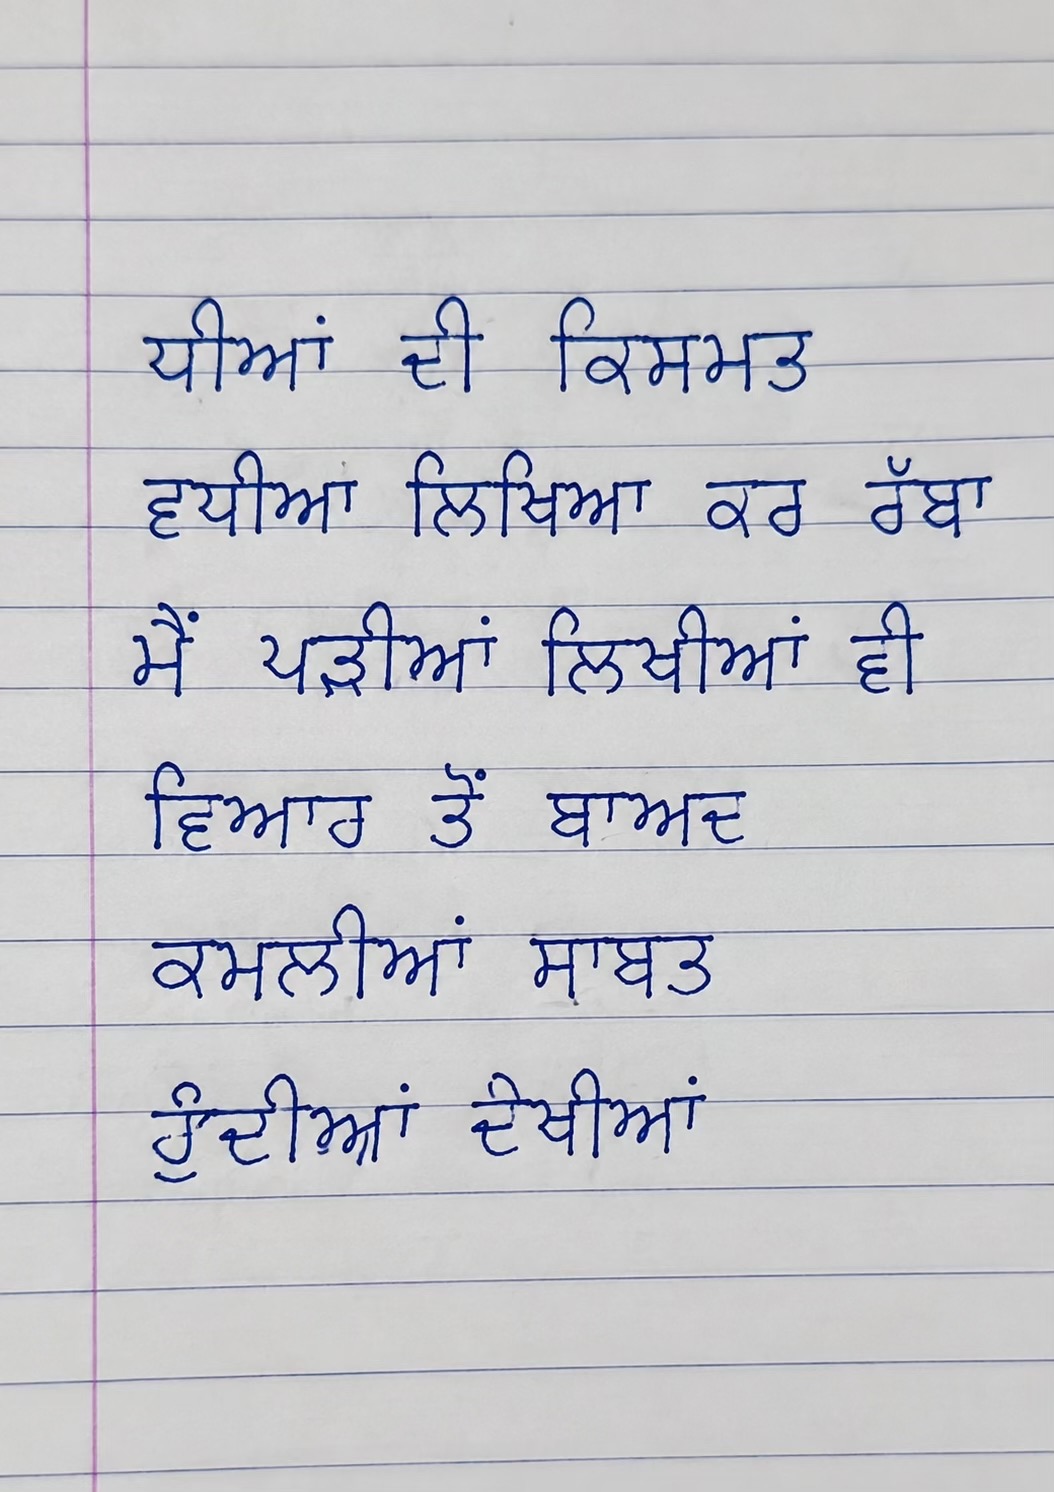 ਧੀਆਂ ਦੀ ਕਿਸਮਤ
ਵਧੀਆ ਲਿਖਿਆ ਕਰ ਰੱਬਾ
ਮੈਂ ਪੜ੍ਹੀਆਂ ਲਿਖੀਆਂ ਵੀ
ਵਿਆਰ ਤੋਂ ਬਾਅਦ
ਕਮਲੀਆਂ ਸਾਬਤ
ਹੁੰਦੀਆਂ ਦੇਖੀਆਂ